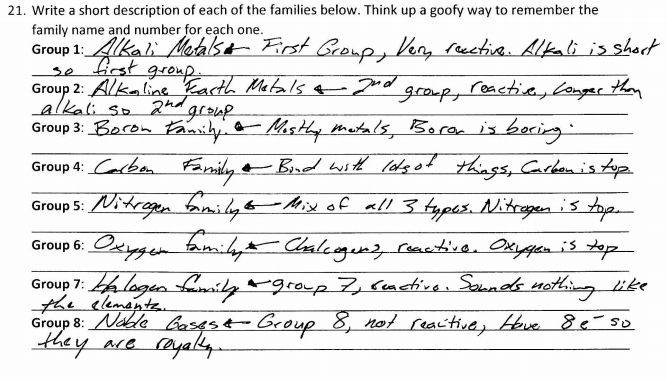 21. Write a short description of each of the families below. Think up a goofy way to remember the
family name and number for each one.
Group 1: Alkali Metals ← First Group, Very reactive. Alkali is short
so first group.
Group 2: Alkaline Earth Metals ← 2nd group, reactive, longer than
alkali so 2nd group
Group 3: Boron Family. ← Mostly metals, Boron is boring.
Group 4: Carbon Family ← Bind with lots of things, Carbon is top
Group 5: Nitrogen family ← Mix of all 3 types. Nitrogen is top.
Group 6: Oxygen family ← Chalcogens, reactive. Oxygen is top
Group 7: Halogen family ← group 7, reactive. Sounds nothing like
the elements.
Group 8: Noble Gases ← Group 8, not reactive, Have 8 e⁻ so
they are royalty.